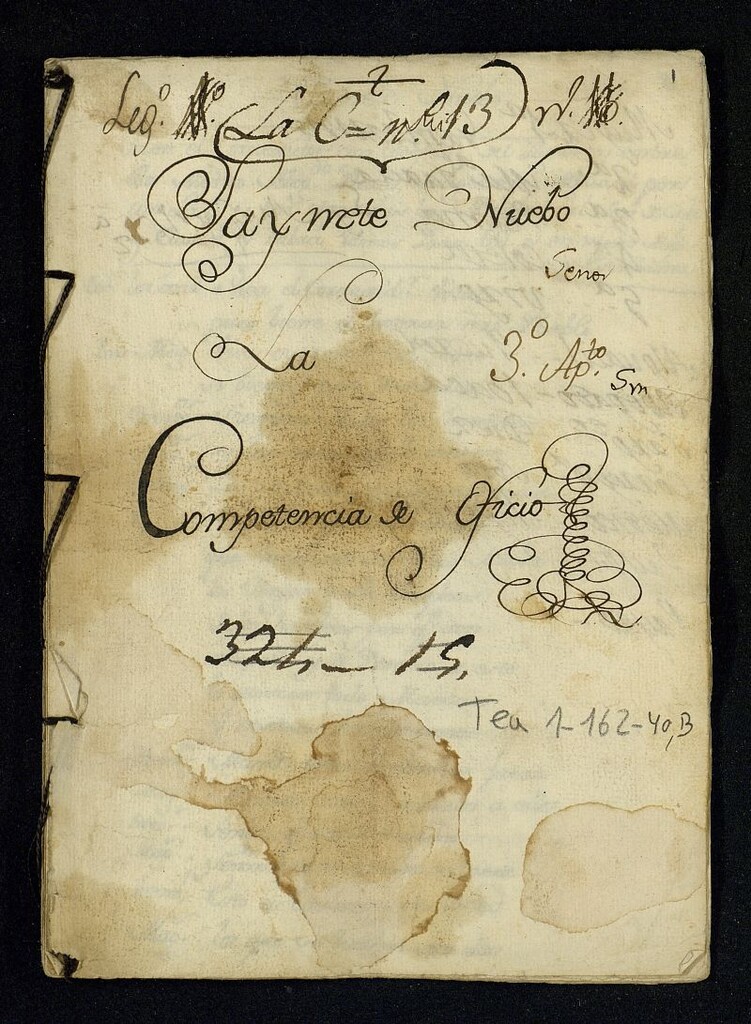 1
Leg.º La C= n.º 13 n.
Saynete Nuebo
Señor
La 3.º Ap.to Sm
Competencia de Oficio
32 15.
Tea 1-162-40,B